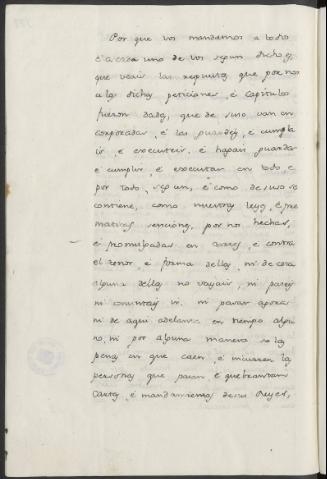 Por que vos mandamos a todos
é a cada uno de vos segun dicho es,
que veais las repuestas que por nos
a las dichas peticiones, é capitulos
fueron dadas, que de suso van en
corporadas, é las guardeis, é cumpla
is, é executeis, é hagais guardar
é cumplir é executar en todo, e
por todo, segun, é como de suso se
contiene, como nuestras leyes, é pre
maticas senciones, por nos hechas,
é promulgadas en cortes, é contra
el tenor, é forma dellas, ni de cosa
alguna dellas no vayais, ni paseis
ni consintais ir, ni pasar aora
ni de aqui adelante en tiempo algu
no, ni por alguna manera so las
penas en que caen, é incurren las
personas que pasan é quebrantan
cartas, é mandamientos de sus Reyes,